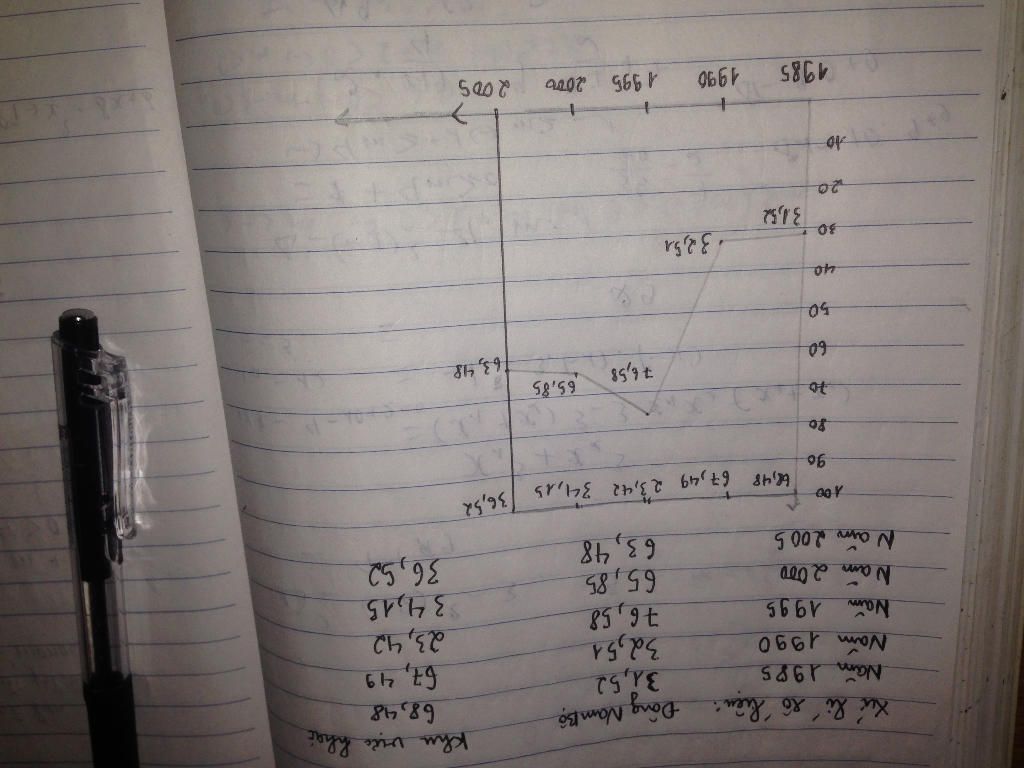 Xử lí số liệu: Đông Nam Bộ Khu vực khác
Năm 1985 31,52 68,48
Năm 1990 32,51 67,49
Năm 1995 76,58 23,42
Năm 2000 65,85 34,15
Năm 2005 63,48 36,52
100 68,48 67,49 23,42 34,15 36,52
90
80
70 76,58 65,85 63,48
60
50
40
30 31,52 32,51
20
10
1985 1990 1995 2000 2005